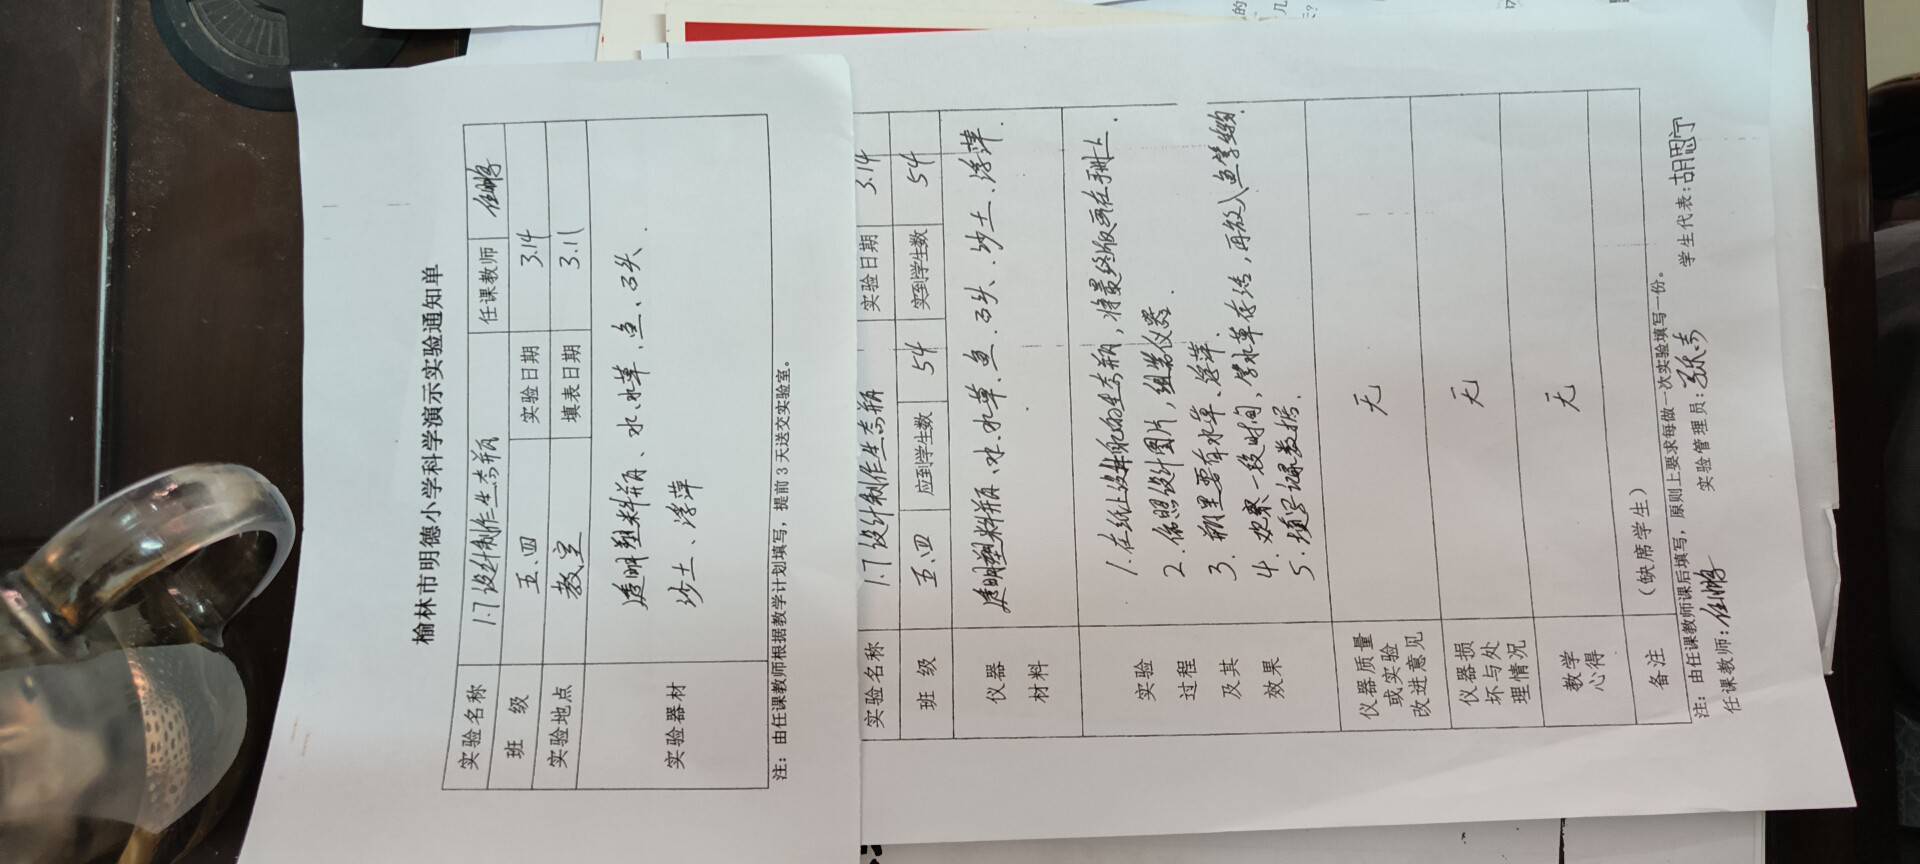 榆林市明德小学科学演示实验通知单
实验名称 1.7设计制作生态瓶 任课教师
班 级 五.四 实验日期 3.14
实验地点 教室 填表日期 3.11
实验器材 透明塑料瓶、水、水草、鱼、石头、
沙土、浮萍
注：由任课教师根据教学计划填写，提前3天送交实验室。
实验名称 1.7设计制作生态瓶 实验日期 3.14
班 级 五.四 应到学生数 54 实到学生数 54
仪器材料 透明塑料瓶、水、水草、鱼、石头、沙土、浮萍.
实验过程及其效果 1.在纸上设计的生态瓶，将最终版画在手册上.
2.依照设计图片，组装仪器.
3.瓶里要有水草、浮萍.
4.观察一段时间，等水草存活，再放入鱼
5.填写记录数据.
仪器质量或实验改进意见 无
仪器损坏与处理情况 无
教学心得 无
备注 （缺席学生）
注：由任课教师课后填写，原则上要求每做一次实验填写一份。
任课教师: 实验管理员: 学生代表:胡思宁